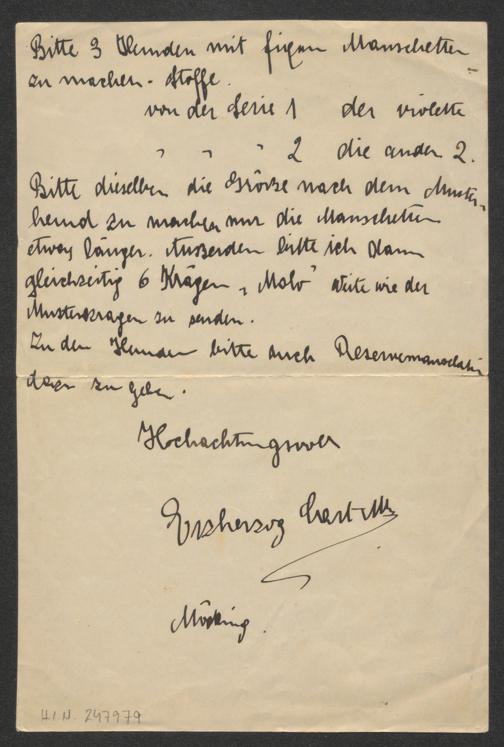 Bitte 3 Hemden mit fixen Manschetten
zu machen. Stoffe.
von der Serie 1 der violette
" " " 2 die andern 2.
Bitte dieselben die Grösze nach dem Muster-
hemd zu machen nur die Manschetten
etwas länger. Auszerdem bitte ich dann
gleichzeitig 6 Krägen „Molo" Weite wie der
Musterkragen zu senden.
Zu den Hemden bitte auch Reservemanschetten
dazu zu geben.
Hochachtungsvoll
Erzherzog
Mödling.
H.I.N. 247979